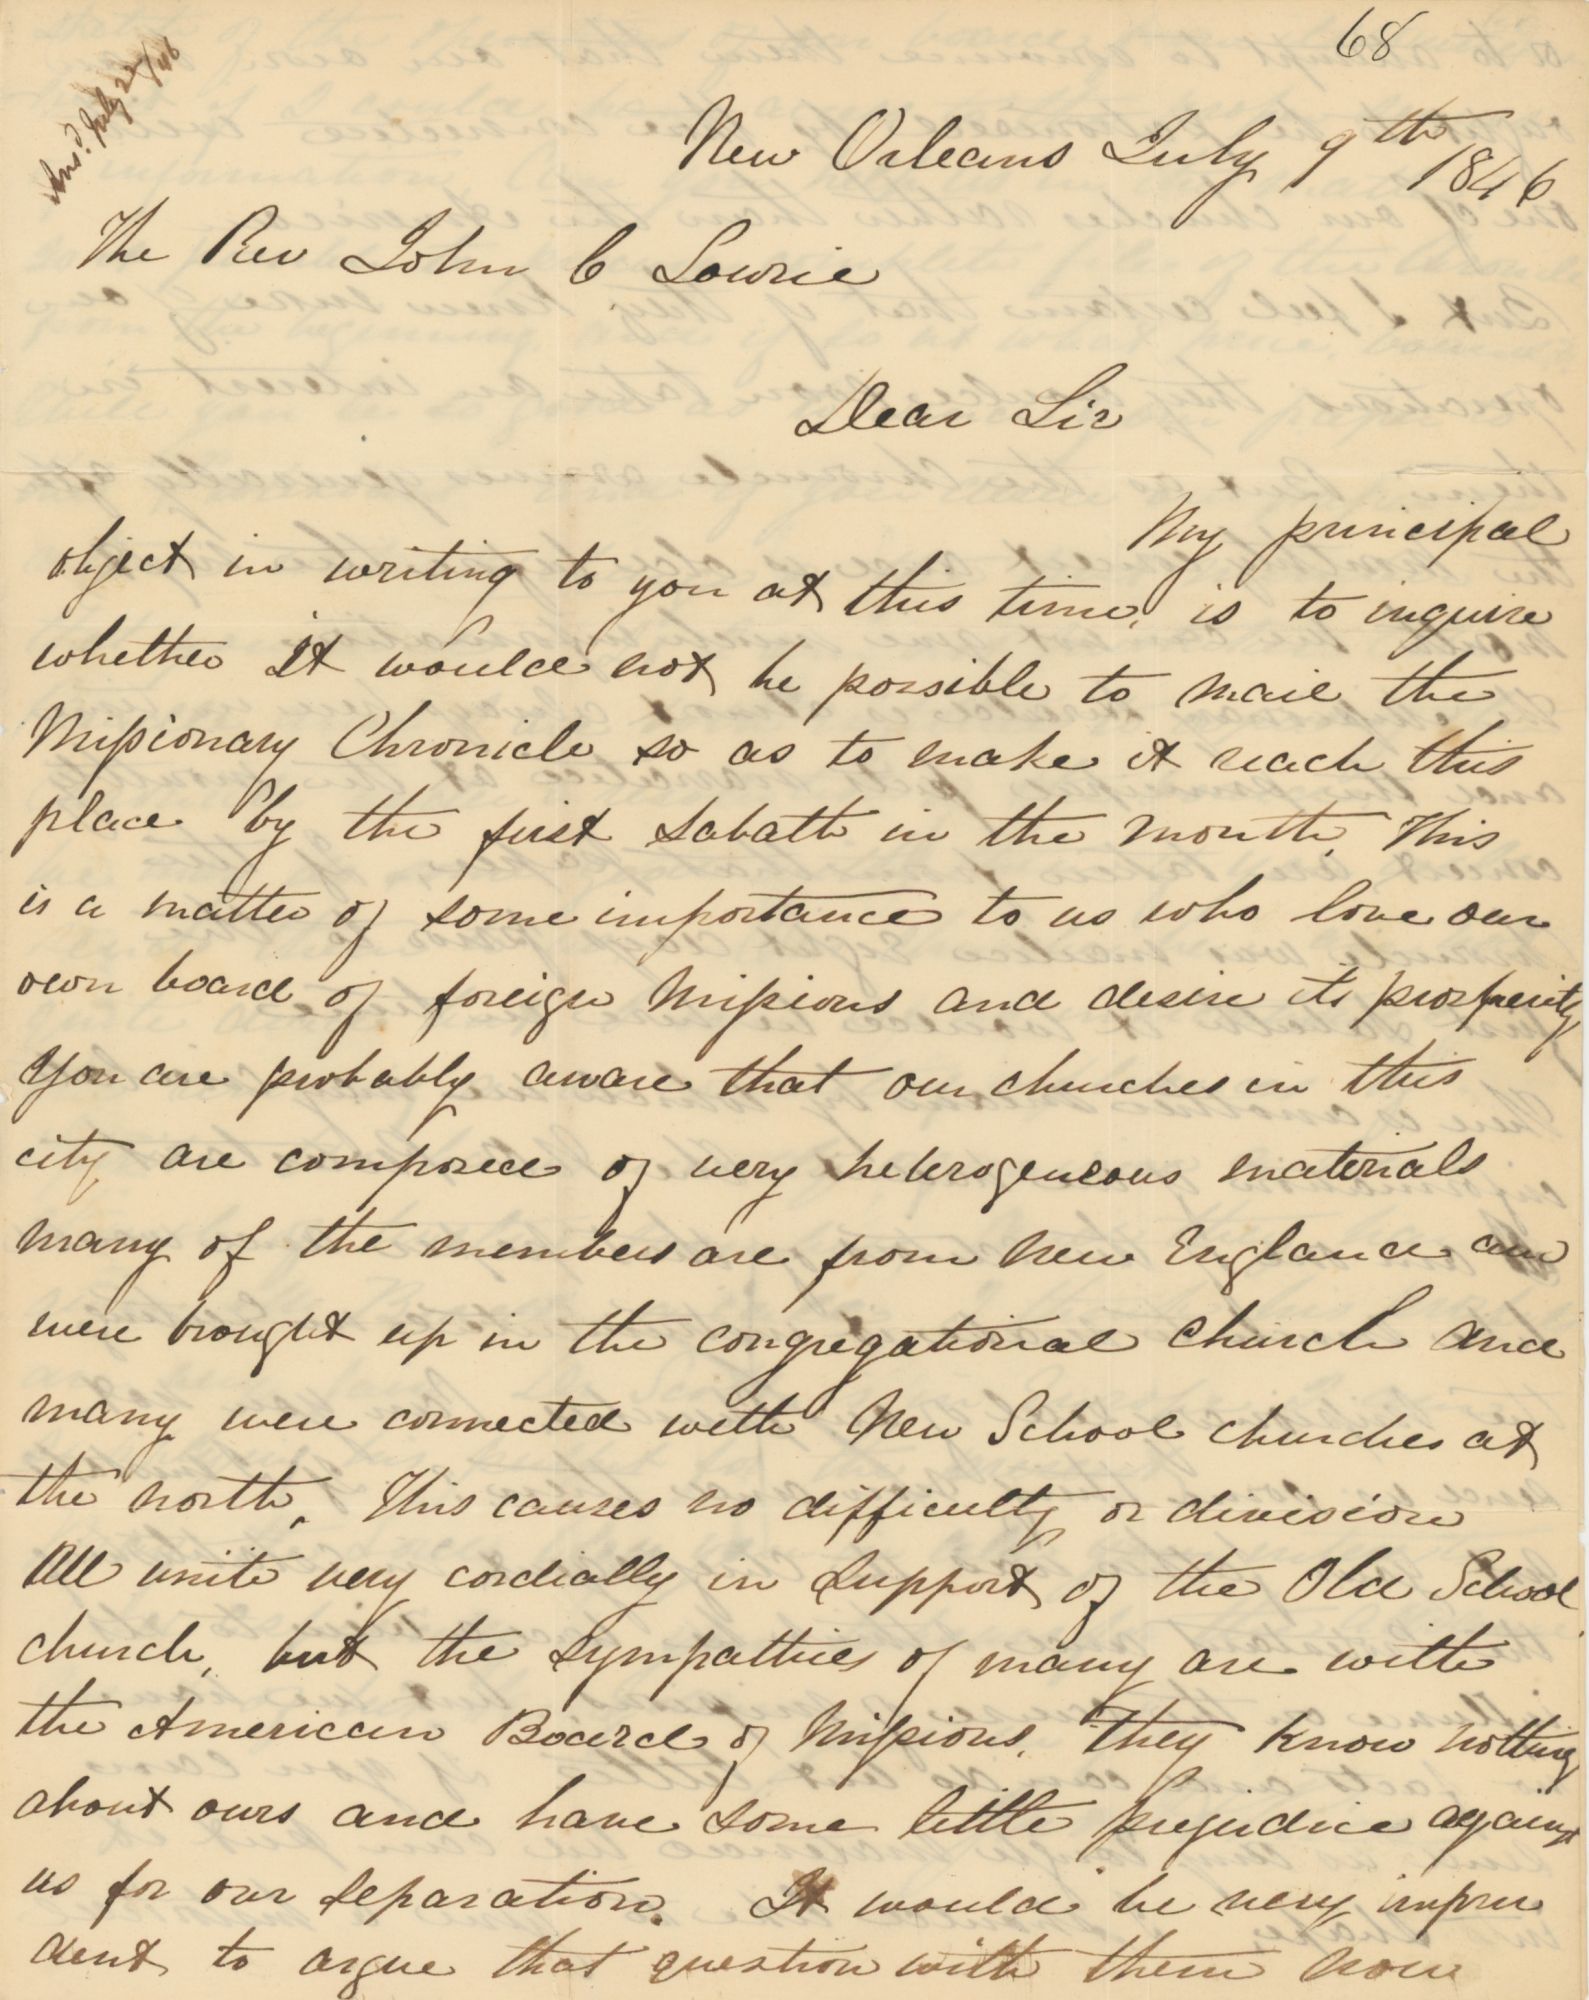 68
Ansd. July 22/46
New Orleans July 9th 1846
The Rev John C Lowrie
Dear Sir
My principal
object in writing to you at this time, is to inquire
whether it would not be possible to mail the
Missionary Chronicle so as to make it reach this
place by the first Sabath in the month. This
is a matter of some importance to us who love our
own board of foreign Missions and desire its prosperity
You are probably aware that our churches in this
city are composed of very heterogeneous materials
many of the members are from New England and
were brought up in the congregational church and
many were connected with New School churches at
the north. This causes no difficulty or division
All unite very cordially in support of the Old School
church, but the sympathies of many are with
the American Board of Missions. They know nothing
about ours and have some little prejudice against
us for our separation. It would be very impru
dent to argue that question with them now